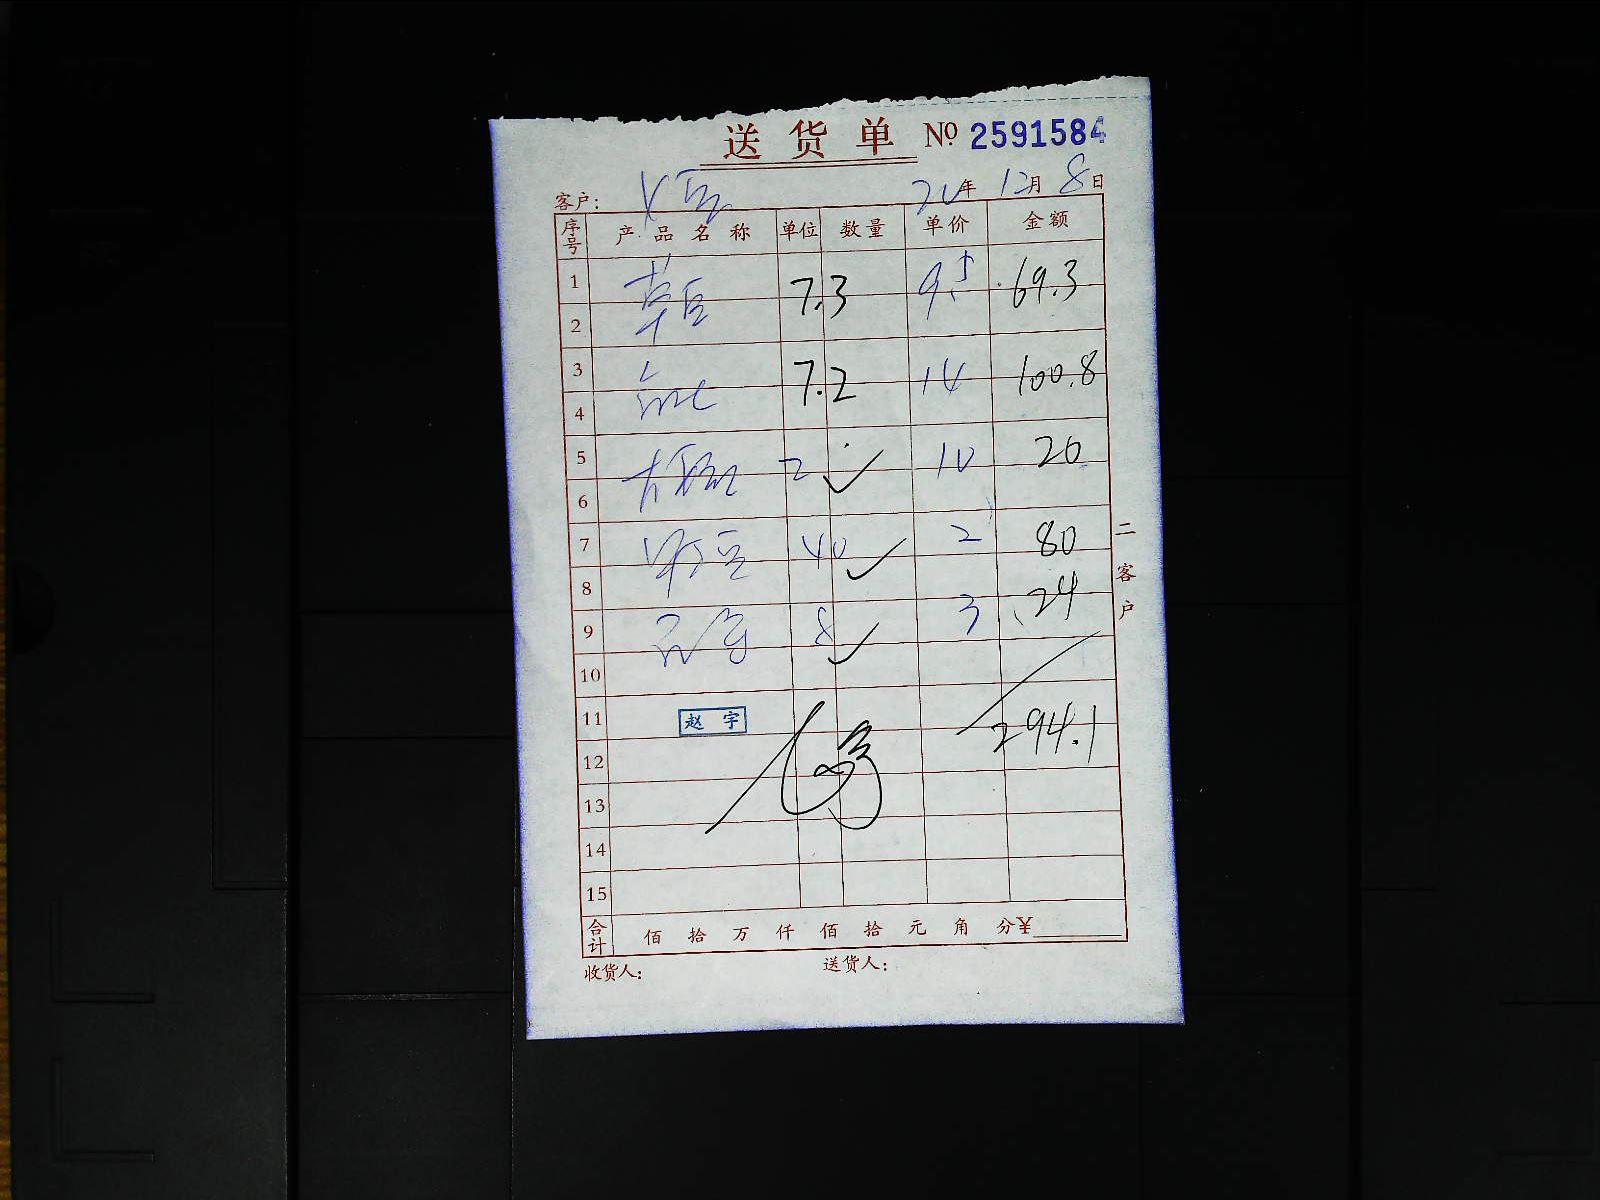 送货单 № 2591584
客户： 20年 12月 8日
序号 产品名称 单位 数量 单价 金额
1 7.3 9.5 69.3
2
3 7.2 14 100.8
4
5 2 10 20
6
7 40 2 80
8
9 8 3 24
10
11 赵宇 294.1
12
13
14
15
合计 佰 拾 万 仟 佰 拾 元 角 分 ¥
收货人： 送货人：
二客户